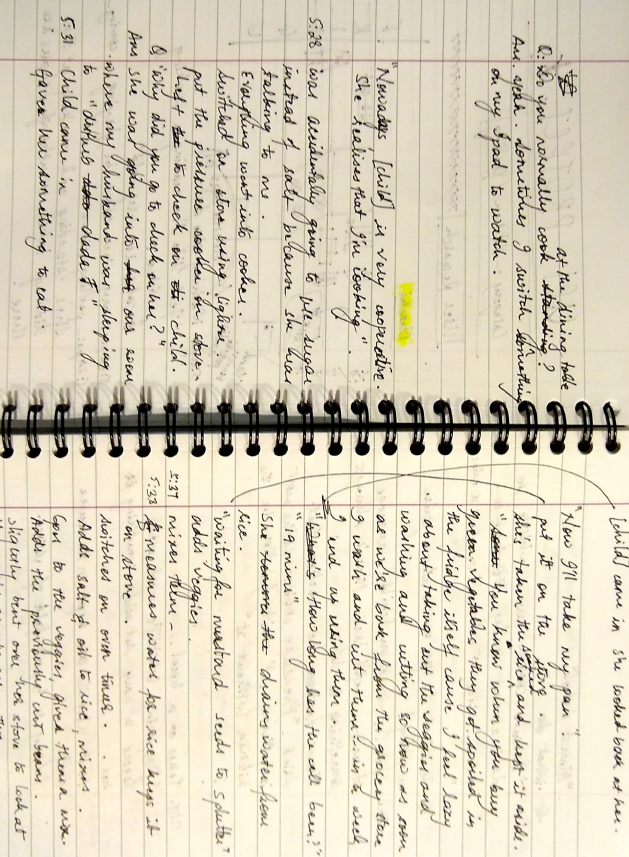 at the dining table
Q: Do you normally cook standing?
Ans: yeah. sometimes I switch something
on my ipad to watch.
"Nowadays [child] is very cooperative
She realises that I'm cooking".
5:28 was accidentally going to use sugar
instead of salt because she was
talking to me.
Everything went into cooker.
Switched on stove using lighter.
put the pressure cooker on stove.
left to check on child.
Q "Why did you go to check on her?"
Ans she was going into our room
where my husband was sleeping
to "disturb dada"
5:31 Child came in
Gave her something to eat.
[child] came in she looked back at her.
"Now I'll take my pan"
put it on the stove.
she's taken the rice and kept it aside.
"You know when you buy
green vegetables they get spoiled in
the fridge itself cause I feel lazy
about taking out the veggies and
washing and cutting so now as soon
as we're back from the grocery store
I wash and cut them... in a week
I end up using them.
"How long has the call been?"
"19 mins"
She drains water from
rice.
"waiting for mustard seeds to splutter"
adds veggies
5:37 mixes them -
5:38 measures water for rice keeps it
on stove.
switches on oven timer.
Adds salt & oil to rice, mixes.
Goes to the veggies, gives them a mix.
Adds the previously cut beans.
slightly bent over her stove to look at